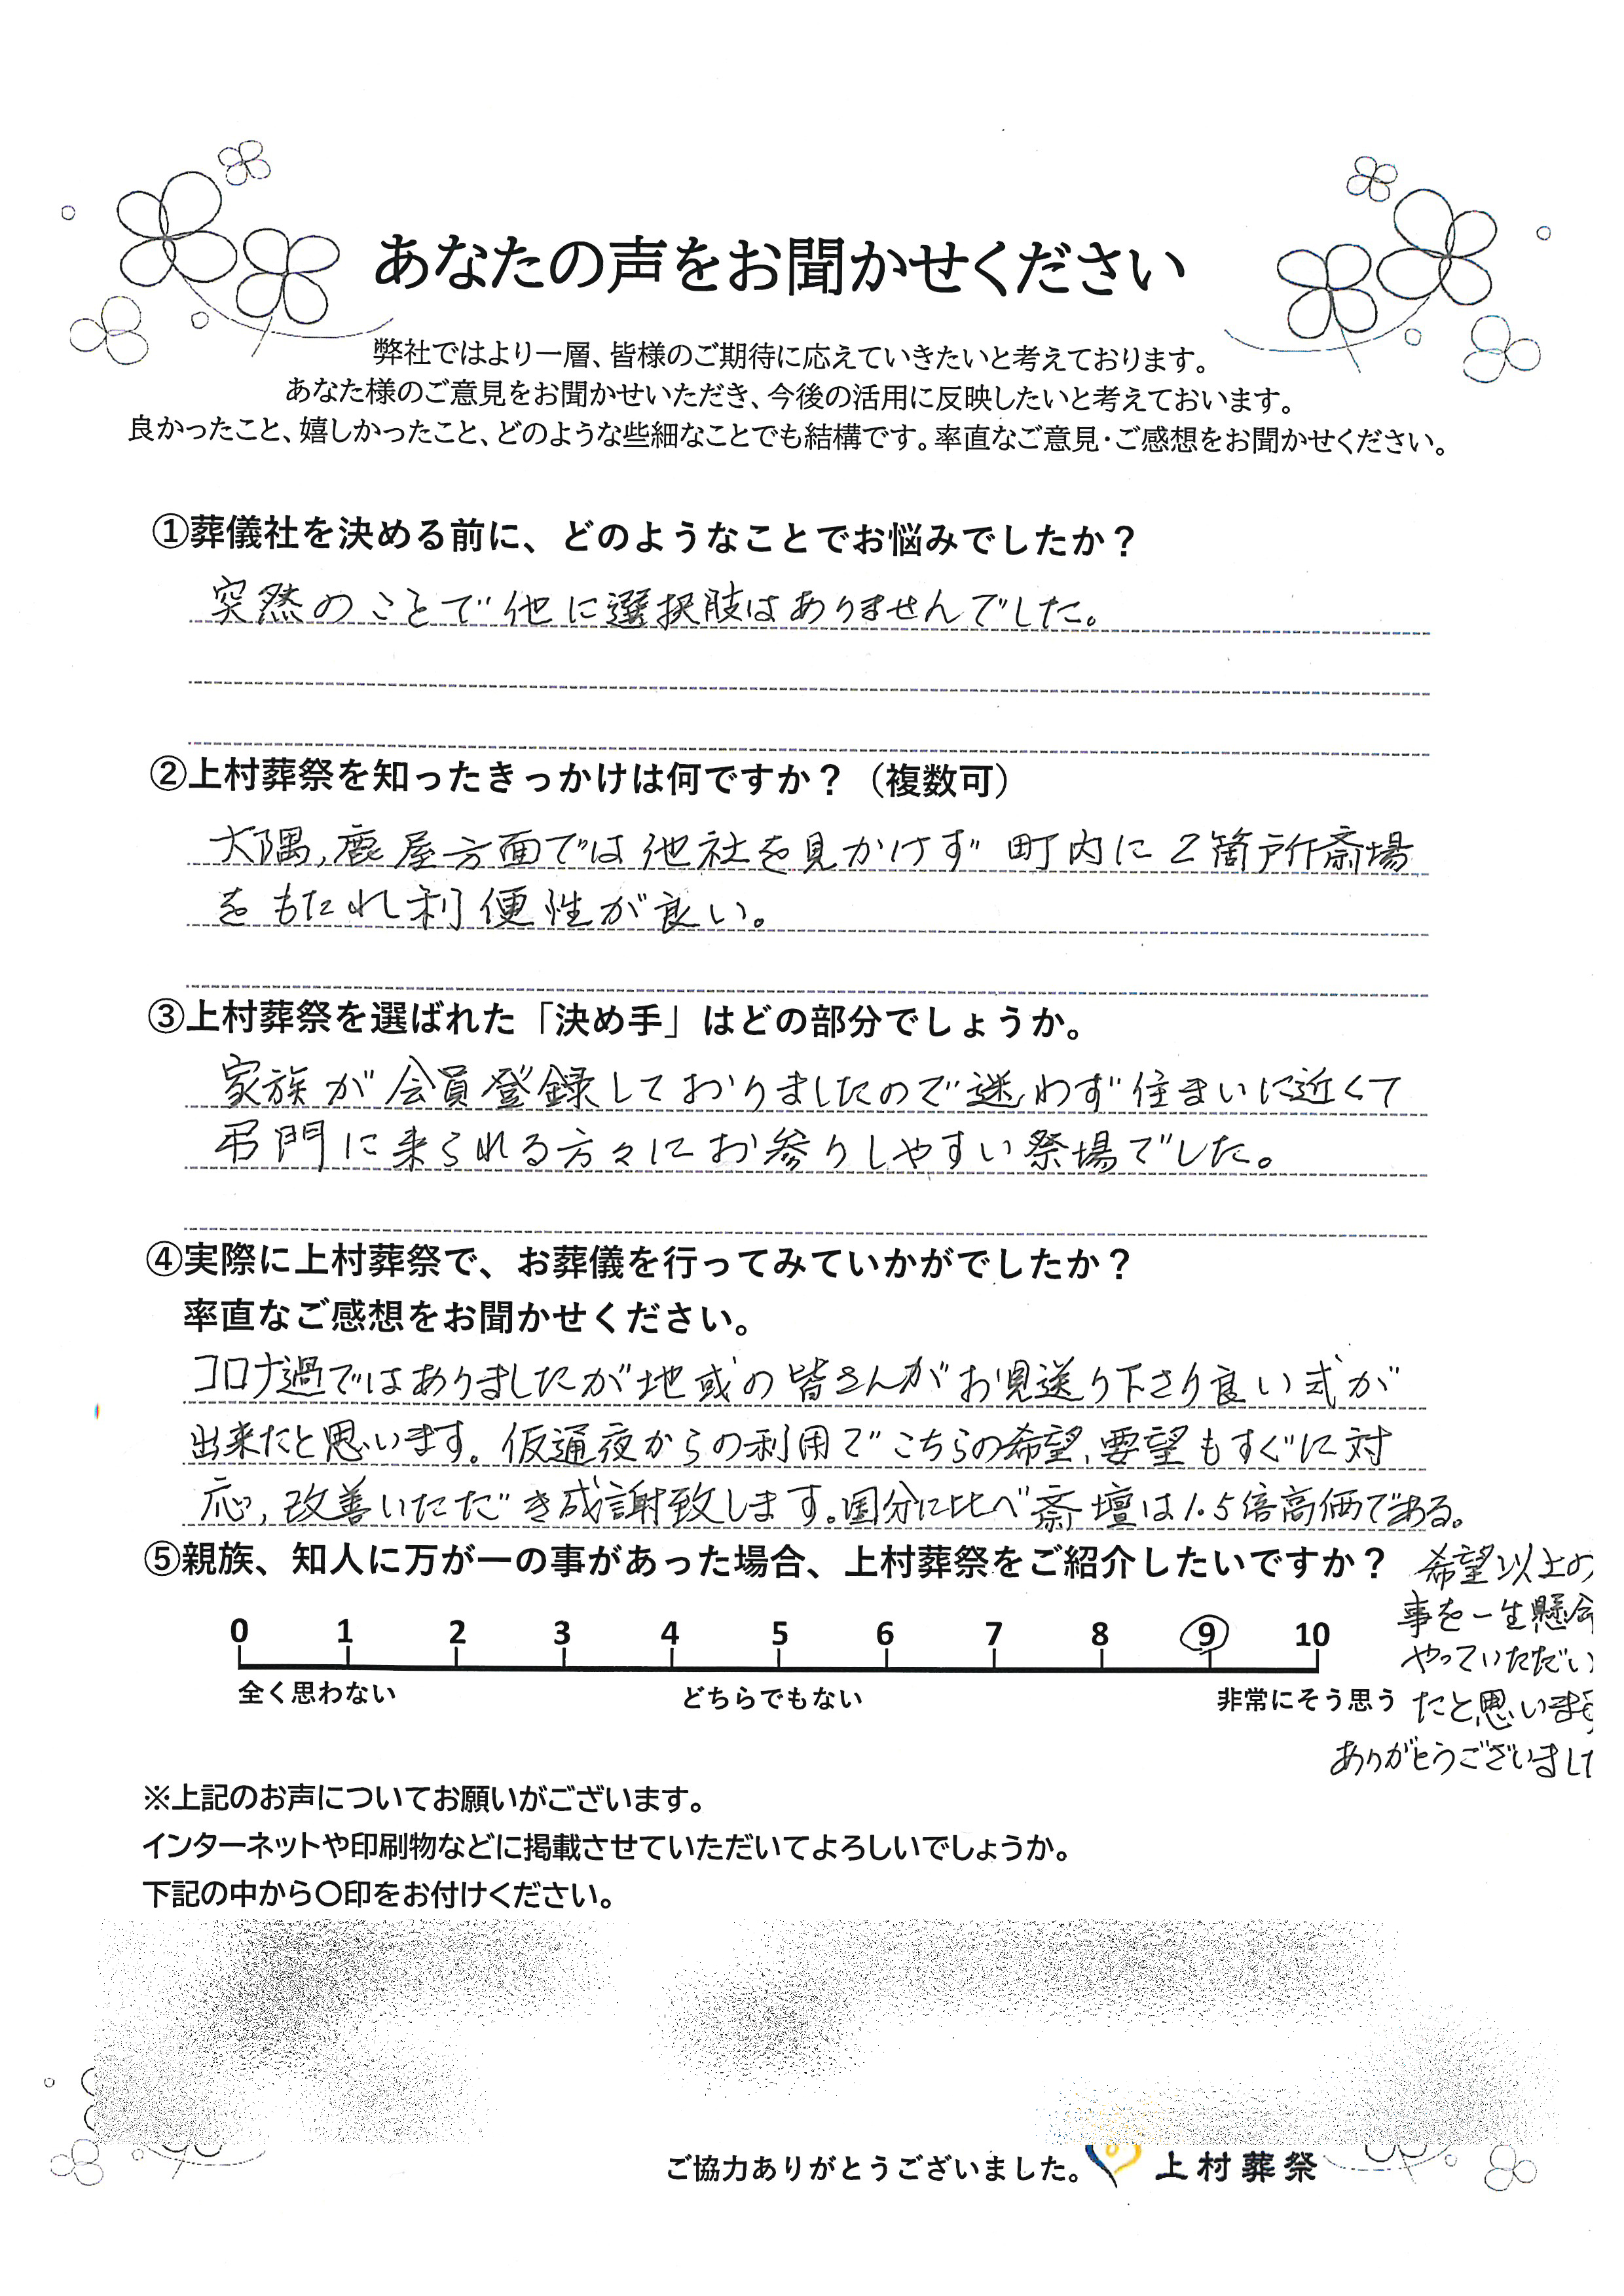 あなたの声をお聞かせください
弊社ではより一層、皆様のご期待に応えていきたいと考えております。
あなた様のご意見をお聞かせいただき、今後の活用に反映したいと考えておいます。
良かったこと、嬉しかったこと、どのような些細なことでも結構です。率直なご意見・ご感想をお聞かせください。
①葬儀社を決める前に、どのようなことでお悩みでしたか？
突然のことで他に選択肢はありませんでした。
②上村葬祭を知ったきっかけは何ですか？（複数可）
大隅,鹿屋方面では他社を見かけず町内に2箇所斎場
をもたれ利便性が良い。
③上村葬祭を選ばれた「決め手」はどの部分でしょうか。
家族が会員登録しておりましたので迷わず住まいに近くて
弔門に来られる方々にお参りしやすい祭場でした。
④実際に上村葬祭で、お葬儀を行ってみていかがでしたか？
率直なご感想をお聞かせください。
コロナ過ではありましたが地域の皆さんがお見送り下さり良い式が
出来たと思います。仮通夜からの利用でこちらの希望、要望もすぐに対
応,改善いただき感謝致します。国分に比べ斎壇は1.5倍高価である。
⑤親族、知人に万が一の事があった場合、上村葬祭をご紹介したいですか？
希望以上の
事を一生懸命
やっていただい
たと思います
ありがとうございまし
0 1 2 3 4 5 6 7 8 9 10
全く思わない どちらでもない 非常にそう思う
※上記のお声についてお願いがございます。
インターネットや印刷物などに掲載させていただいてよろしいでしょうか。
下記の中から〇印をお付けください。
ご協力ありがとうございました。 上村葬祭